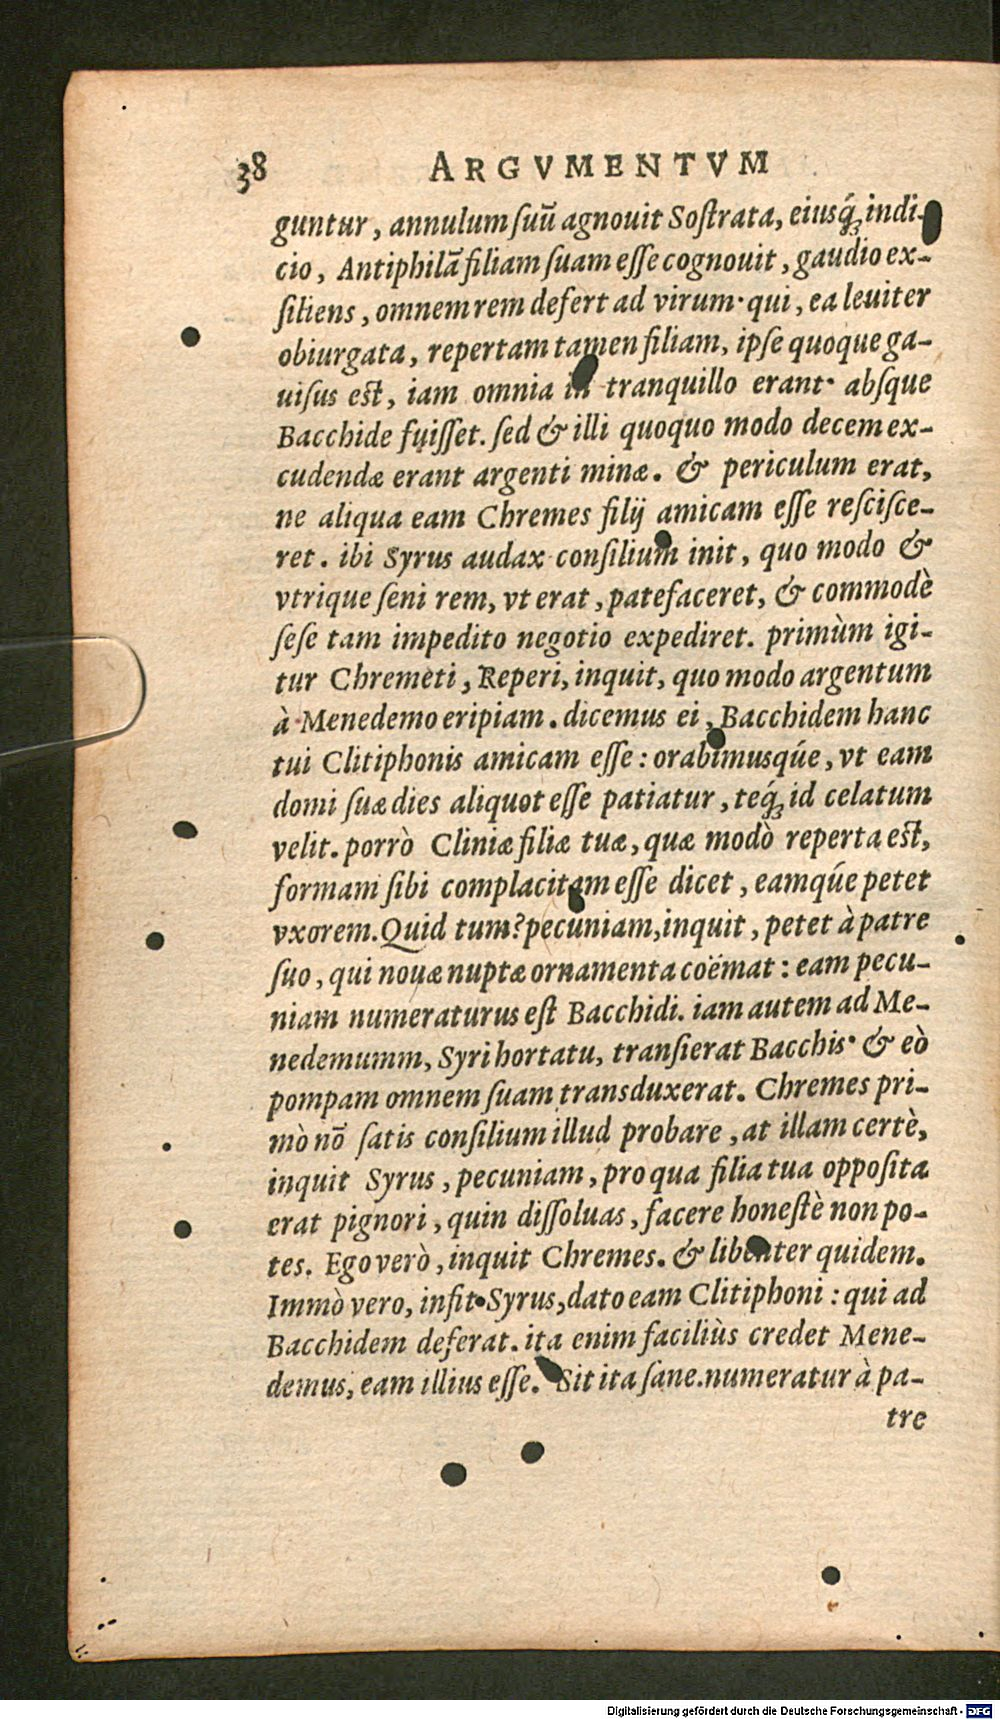 38 ARGVMENTVM
guntur, annulum ſuū agnouit Soſtrata, eiusq́; indi-
cio, Antiphilā filiam ſuam eſſe cognouit, gaudio ex-
ſiliens, omnem rem defert ad virum· qui, ea leuiter
obiurgata, repertam tamen filiam, ipſe quoque ga-
uiſus eſt, iam omnia in tranquillo erant· abſque
Bacchide fuiſſet. ſed & illi quoquo modo decem ex-
cudendæ erant argenti minæ. & periculum erat,
ne aliqua eam Chremes filij amicam eſſe reſciſce-
ret. ibi Syrus audax conſilium init, quo modo &
vtrique ſeni rem, vt erat, patefaceret, & commodè
ſeſe tam impedito negotio expediret. primùm igi-
tur Chremeti, Reperi, inquit, quo modo argentum
à Menedemo eripiam. dicemus ei, Bacchidem hanc
tui Clitiphonis amicam eſſe: orabimusq́ue, vt eam
domi ſuæ dies aliquot eſſe patiatur, teq́; id celatum
velit. porrò Cliniæ filiæ tuæ, quæ modò reperta eſt,
formam ſibi complacitam eſſe dicet, eamq́ue petet
vxorem. Quid tum? pecuniam, inquit, petet à patre
ſuo, qui nouæ nuptæ ornamenta coëmat: eam pecu-
niam numeraturus eſt Bacchidi. iam autem ad Me-
nedemumm, Syri hortatu, tranſierat Bacchis· & eò
pompam omnem ſuam transduxerat. Chremes pri-
mò nō ſatis conſilium illud probare, at illam certè,
inquit Syrus, pecuniam, pro qua filia tua oppoſita
erat pignori, quin diſſoluas, facere honeſtè non po-
tes. Ego verò, inquit Chremes. & libenter quidem.
Immò vero, infit Syrus, dato eam Clitiphoni: qui ad
Bacchidem deferat. ita enim faciliùs credet Mene-
demus, eam illius eſſe. Sit ita ſane. numeratur à pa-
tre
Digitalisierung gefördert durch die Deutsche Forschungsgemeinschaft - DFG